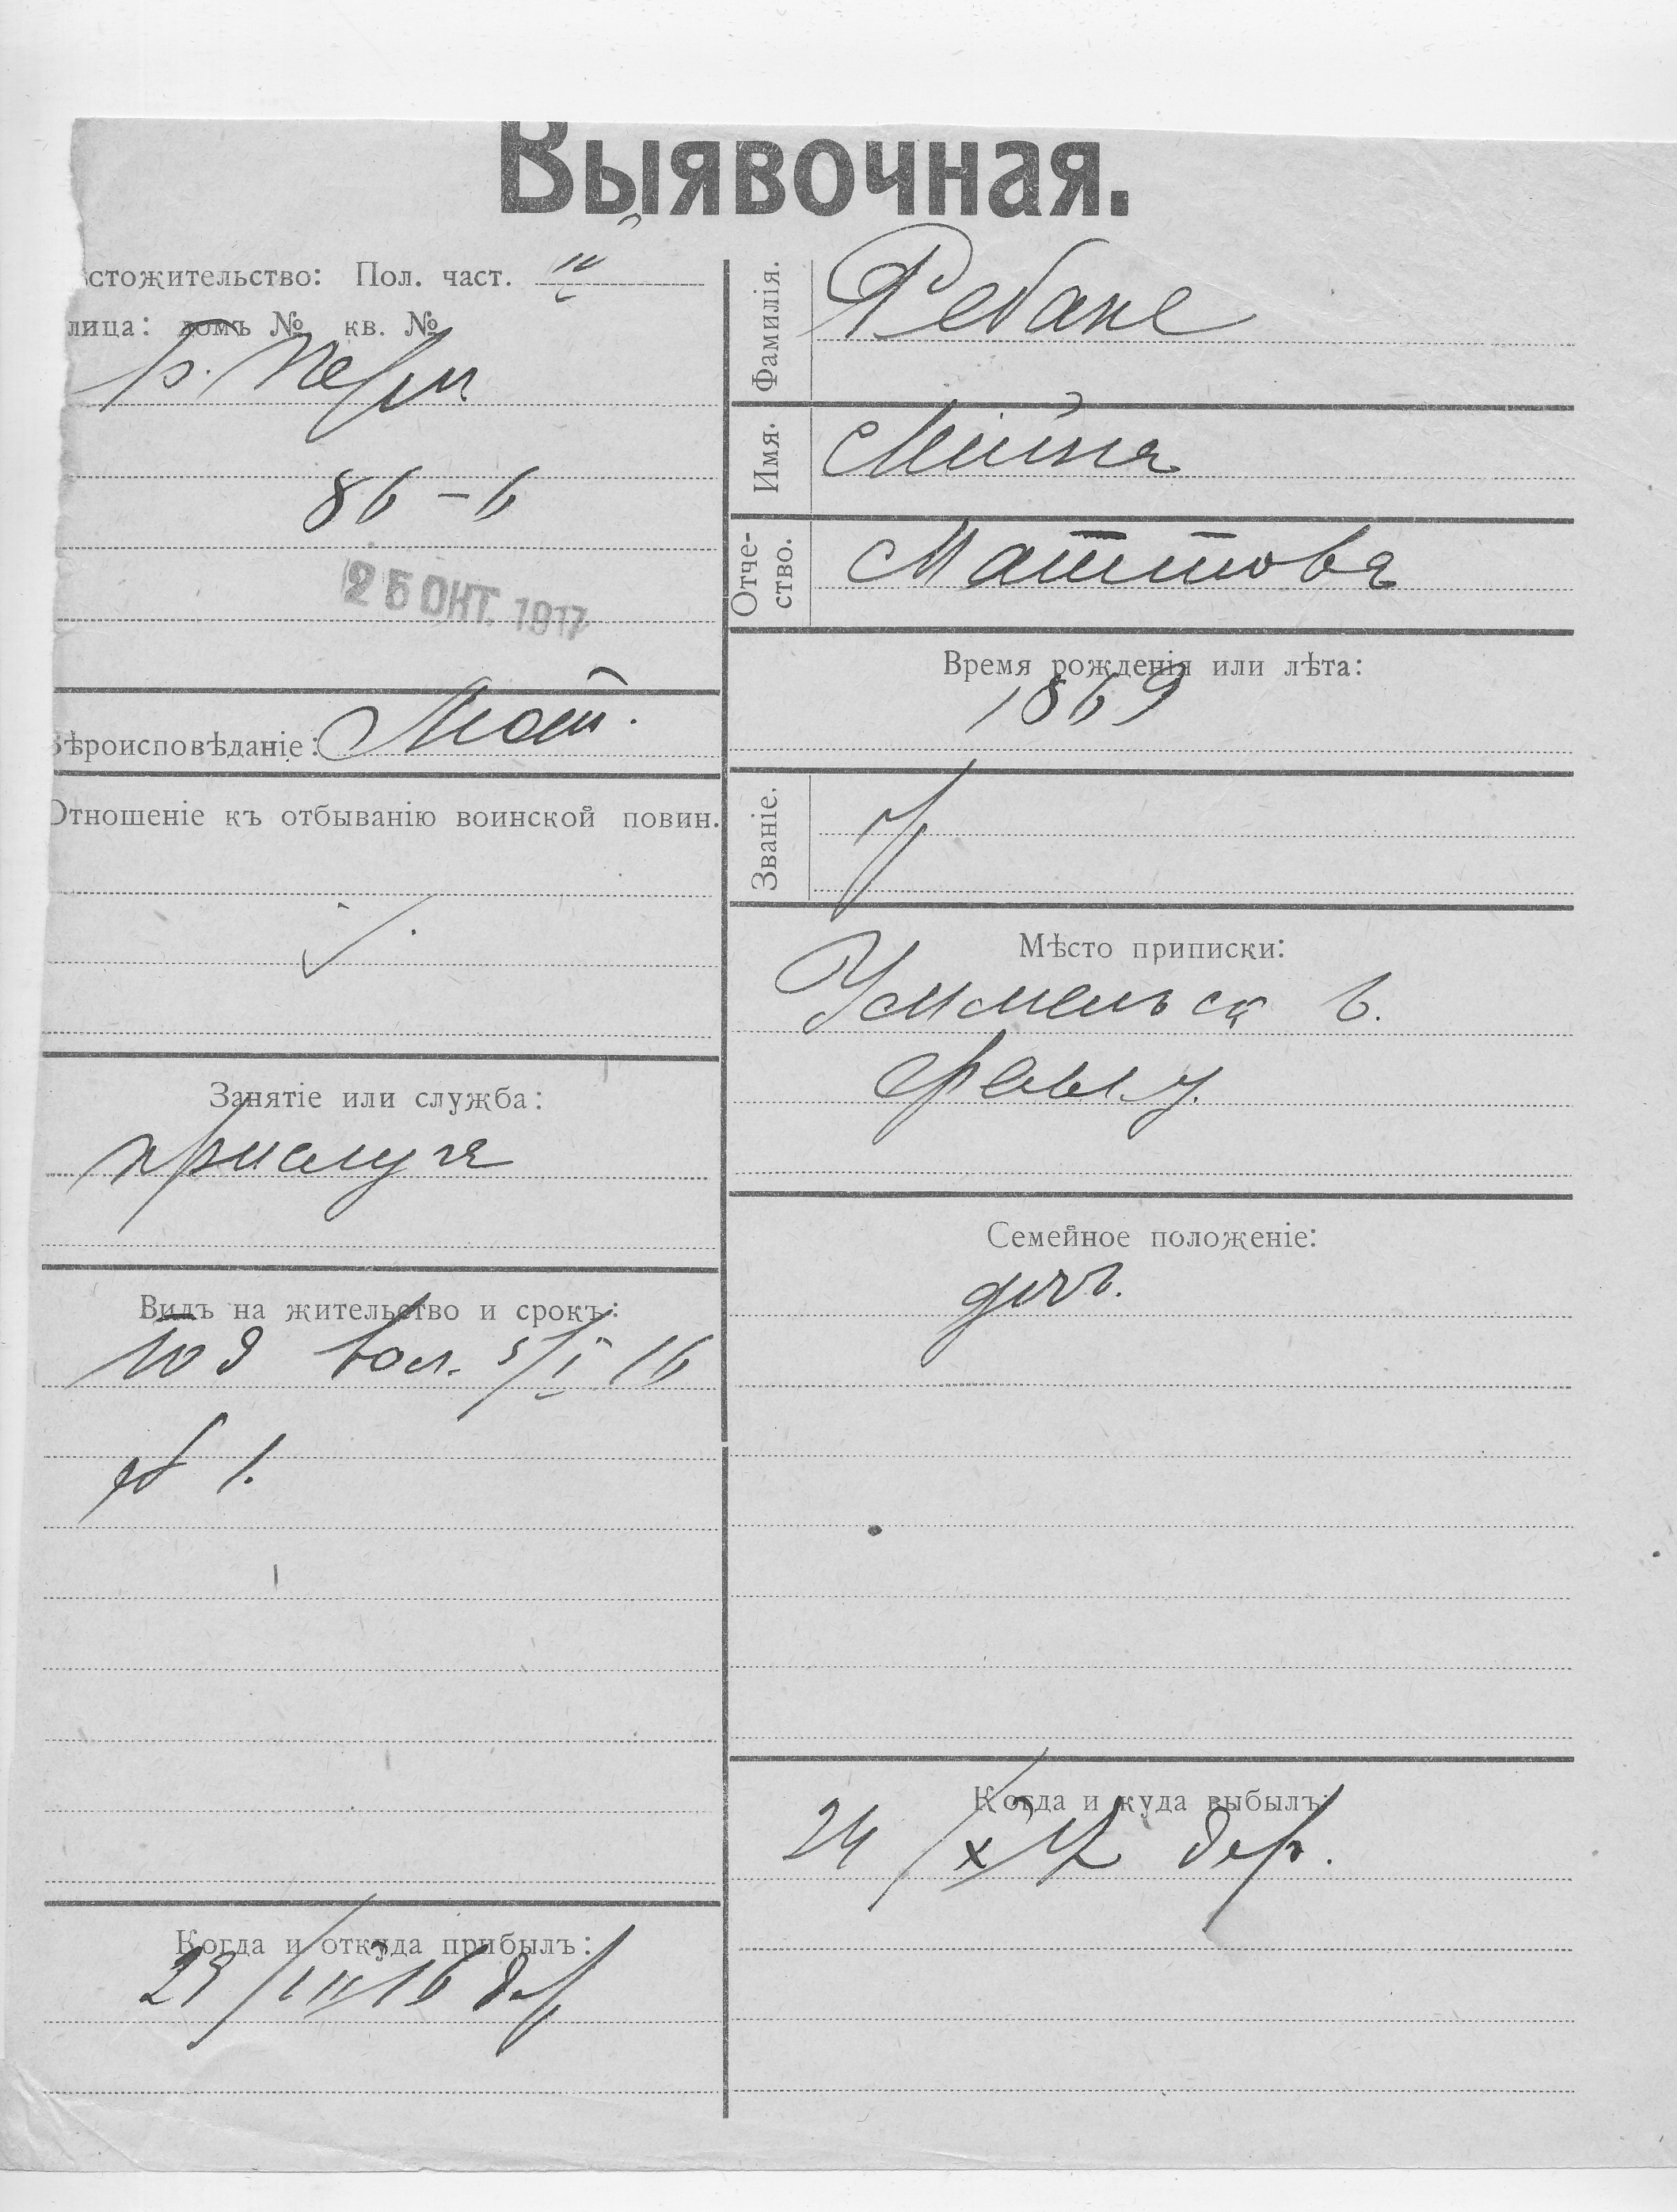 Выявочная.
стожительство: Пол. част. IV
лица: домъ № кв. №
86 – 6
25 ОКТ. 1917
Вѣроисповѣданіе: Лют.
Отношеніе къ отбыванію воинской повин.
Занятіе или служба:
прислуга
Видъ на жительство и срокъ:
вол. 5/I 16
№ 1.
Когда и откуда прибылъ:
29/III 16 дер
Фамилія. Ребане
Имя. Мина
Отче-
ство. Маттова
Время рожденія или лѣта:
1869
Званіе. кр
Мѣсто приписки:
в.
Рев. у.
Семейное положеніе:
Когда и куда выбылъ:
24/X 17 дер.